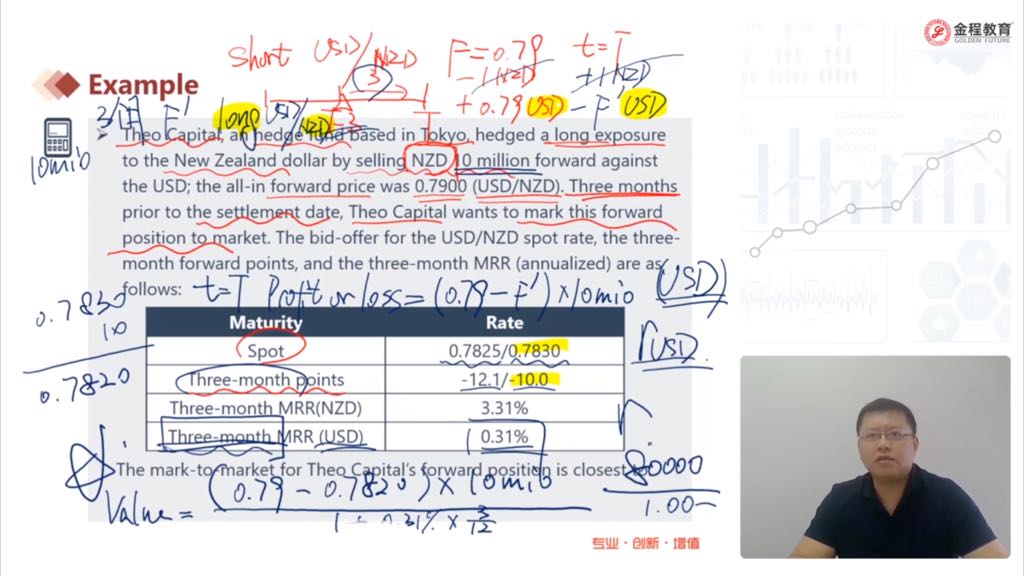 金程教育
GOLDEN FUTURE
Short USD/NZD F=0.79 t=T
3 -1NZD +1NZD
+0.79USD -F'USD
Example
3/月 F' long USD/NZD
10mio
Theo Capital, an hedge fund based in Tokyo, hedged a long exposure
to the New Zealand dollar by selling NZD 10 million forward against
the USD; the all-in forward price was 0.7900 (USD/NZD). Three months
prior to the settlement date, Theo Capital wants to mark this forward
position to market. The bid-offer for the USD/NZD spot rate, the three-
month forward points, and the three-month MRR (annualized) are as
follows:
t=T Profit or loss = (0.79 - F') × 10mio (USD)
0.7830
10
0.7820
Maturity Rate
Spot 0.7825/0.7830
rUSD.
Three-month points -12.1/-10.0
Three-month MRR(NZD) 3.31%
Three-month MRR (USD) 0.31%
The mark-to-market for Theo Capital's forward position is closest
Value = (0.79 - 0.7820) × 10mio
1 + 0.31% × 3/12
80000
1.00
专业·创新·增值